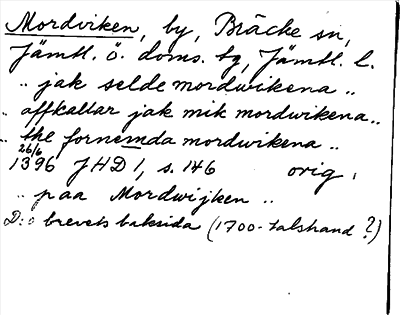 Mordviken, by, Bräcke sn,
Jämtl. ö. doms. tg, Jämtl. l.
.. jak selde mordwikena ..
.. affkallar jak mik mordwikena..
.. the fornemda mordwikena ..
26/6
1396 JHD 1, s. 146 orig.
.. paa Mordwijken ..
D:o brevets baksida (1700-talshand ?)